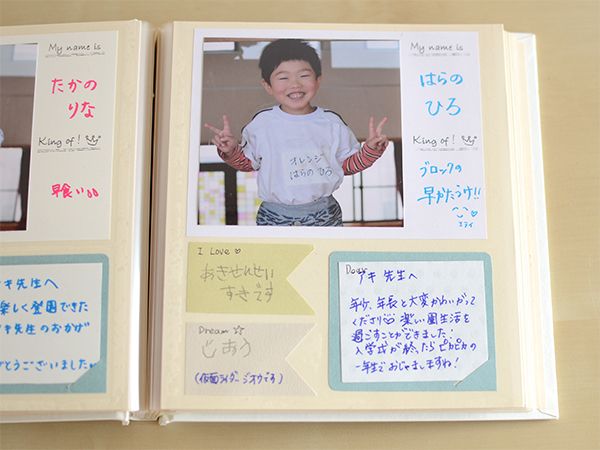 My name is
たかの
りな
King of!
早食い
キ先生へ
楽しく登園できた
キ先生のおかげ
とうございました
My name is
はらの
ひろ
King of!
ブロックの
早かたづけ!!
エライ
オレンジ
はらの ひろ
I Love
おきせんせい
すきです
Dream ☆
じおう
(仮面ライダージオウです)
Dear
アキ 先生へ
年少、年長と大変かわいがって
くださり 楽しい園生活を
過ごすことができました!
入学式が終ったらピカピカの
一年生でおじゃましますね!